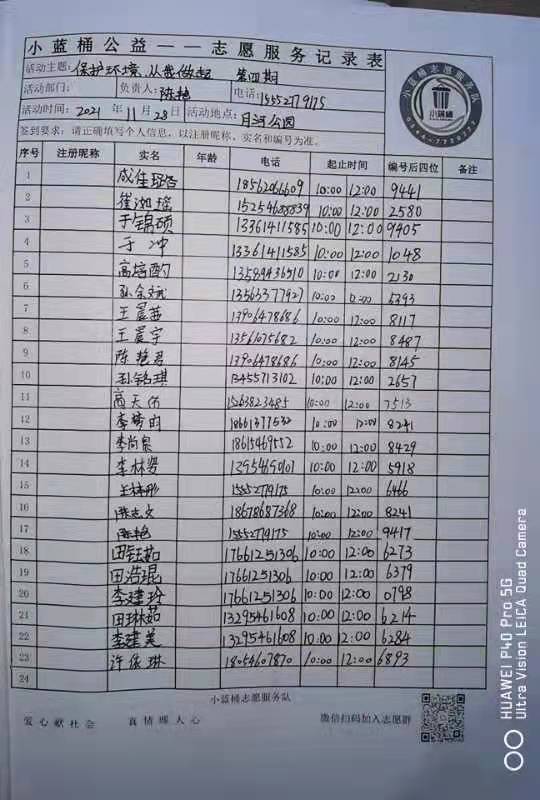 小蓝桶公益——志愿服务记录表
活动主题: 保护环境,从我做起 第四期
活动部门: 负责人: 陈艳 电话: 15552779175
活动时间: 2021 年 11 月 28 日 活动地点: 月河公园
签到要求: 请正确填写个人信息,以注册昵称、实名和编号为准。
小蓝桶志愿服务队
小蓝桶
序号 注册昵称 实名 年龄 电话 起止时间 编号后四位 备注
1 18562066609 10:00 12:00 9441
2 10:00 12:00 2580
3 于锦硕 13361411585 10:00 12:00 9405
4 于冲 13361411585 10:00 12:00 1048
5 10:00 12:00 2130
6 13563377927 10:00 12:00
7 王晨苗 13906478686 10:00 12:00 8117
8 王晨宇 13561075682 10:00 12:00 8487
9 陈艳君 13906478686 10:00 12:00 8145
10 孙铭琪 13455713102 10:00 12:00 2657
11 15263823485 10:00 12:00 7513
12 10:00 12:00 8241
13 李尚泉 18615469552 10:00 12:00 8429
14 李林贤 10:00 12:00 5918
15 15552779175 10:00 12:00 6466
16 陈志文 18678687368 10:00 12:00 8241
17 陈艳 15552779175 10:00 12:00 9417
18 田钰茹 17661251306 10:00 12:00 6273
19 田浩琨 17661251306 10:00 12:00 6379
20 李建玲 17661251306 10:00 12:00 0798
21 田琳茹 13295461608 10:00 12:00 6214
22 李建美 13295461608 10:00 12:00 6284
23 许依琳 18054607870 10:00 12:00 6893
24
小蓝桶志愿服务队
爱心献社会 真情暖人心 微信扫码加入志愿群
HUAWEI P40 Pro 5G
Ultra Vision LEICA Quad Camera